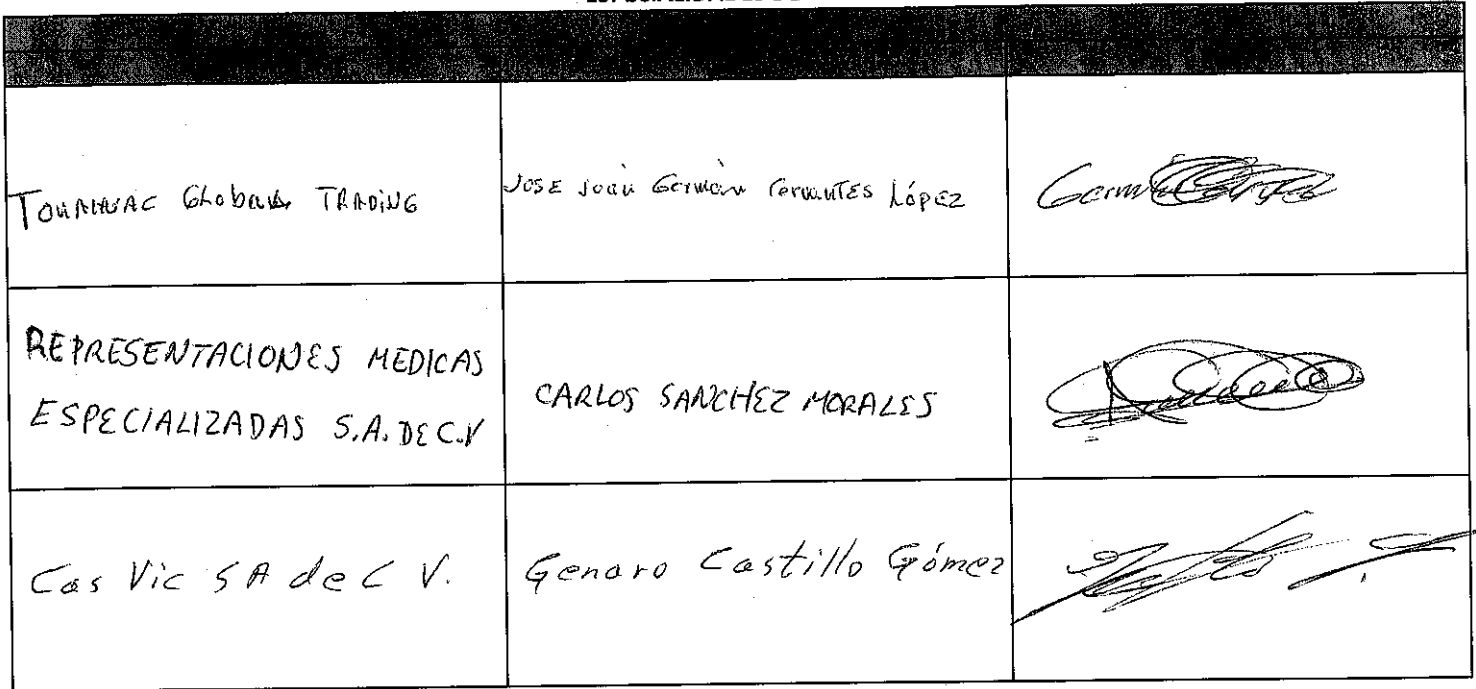 Global TRADING
JOSE Juan Germán Cervantes López
REPRESENTACIONES MEDICAS
ESPECIALIZADAS S.A. DE C.V
CARLOS SANCHEZ MORALES
Cas Vic SA de C V.
Genaro Castillo Gómez